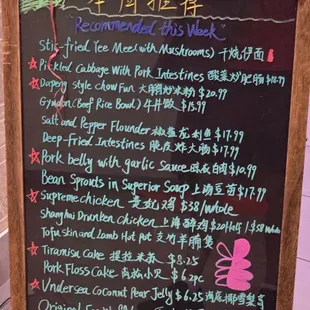 本周推荐
Recommended this Week
Stir-fried Yee Mee (with Mushrooms) 干烧伊面
Pickled Cabbage With Pork Intestines 酸菜炒肥肠 $18.99
Dapeng style chow Fun 大鹏炒米粉 $20.99
Gyudon (Beef Rice Bowl) 牛丼饭 $15.99
Salt and Pepper Flounder 椒盐龙利鱼 $17.99
Deep-fried Intestines 脆皮炸大肠 $17.99
Pork belly with garlic Sauce 蒜泥白肉 $10.99
Bean Sprouts in Superior Soup 上汤豆苗 $17.99
Supreme chicken 贵妃鸡 $38/Whole
Shanghai Drunken chicken 上海醉鸡 $20/Half | $38 Whole
Tofu Skin and Lamb Hot Pot 支竹羊腩煲
Tiramisu Cake 提拉米苏 $8.25
Pork Floss Cake 肉松小贝 $6 2pc
Undersea Coconut Pear Jelly $6.25 海底椰雪梨
Original